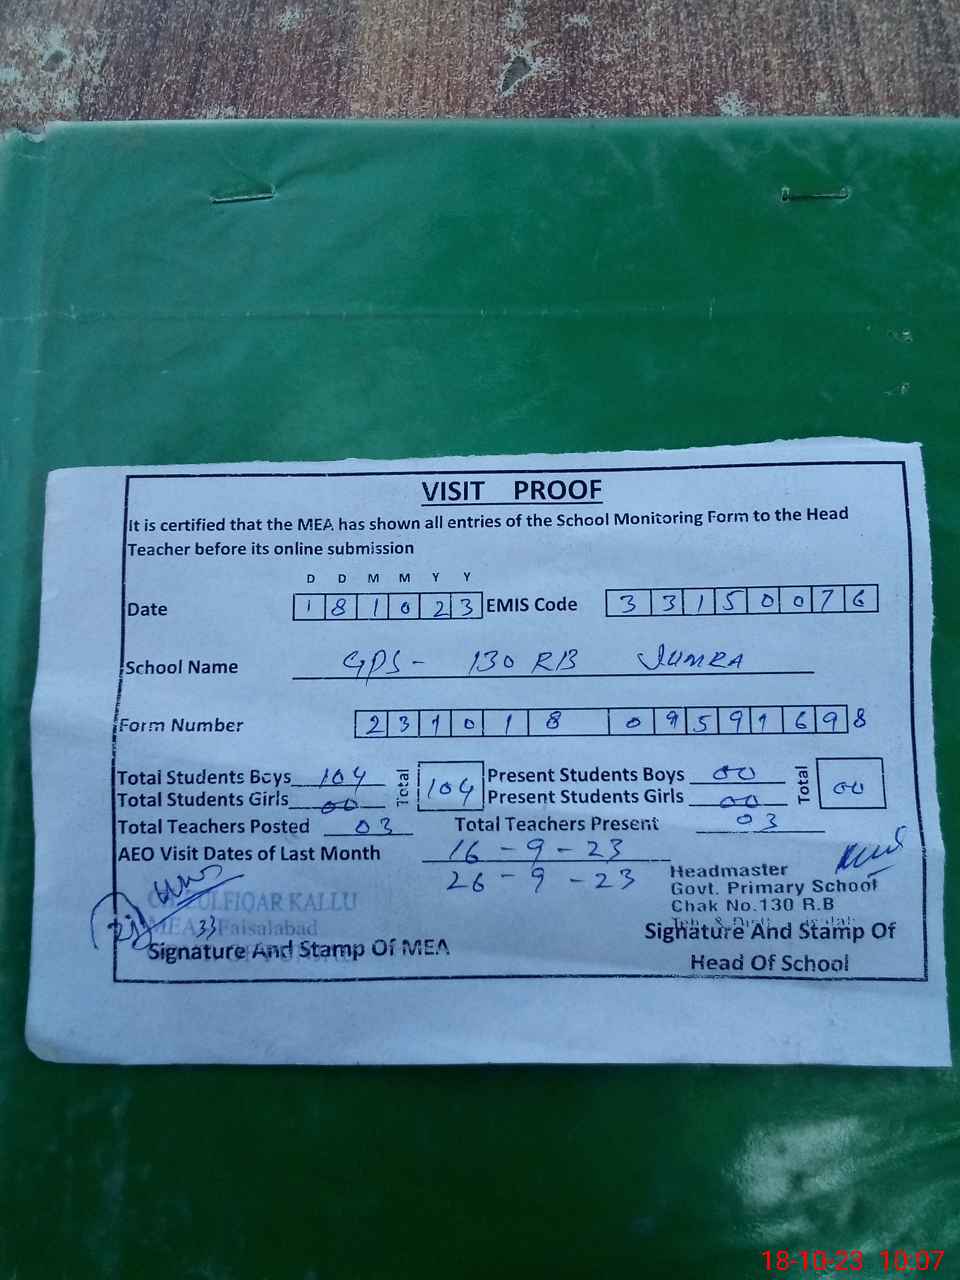 VISIT PROOF
It is certified that the MEA has shown all entries of the School Monitoring Form to the Head
Teacher before its online submission
D D M M Y Y
Date 1 8 1 0 2 3 EMIS Code 3 3 1 5 0 0 7 6
School Name GPS - 130 RB JUMRA
Form Number 2 3 1 0 1 8 0 9 5 9 1 6 9 8
Total Students Boys 104 Total 104 Present Students Boys 00 Total 00
Total Students Girls 00 Present Students Girls 00
Total Teachers Posted 03 Total Teachers Present 03
AEO Visit Dates of Last Month 16 - 9 - 23
26 - 9 - 23
Headmaster
Govt. Primary School
Chak No.130 R.B
ZULFIQAR KALLU
MEA 33 Faisalabad
Signature And Stamp Of MEA
Signature And Stamp Of
Head Of School
18-10-23 10:07